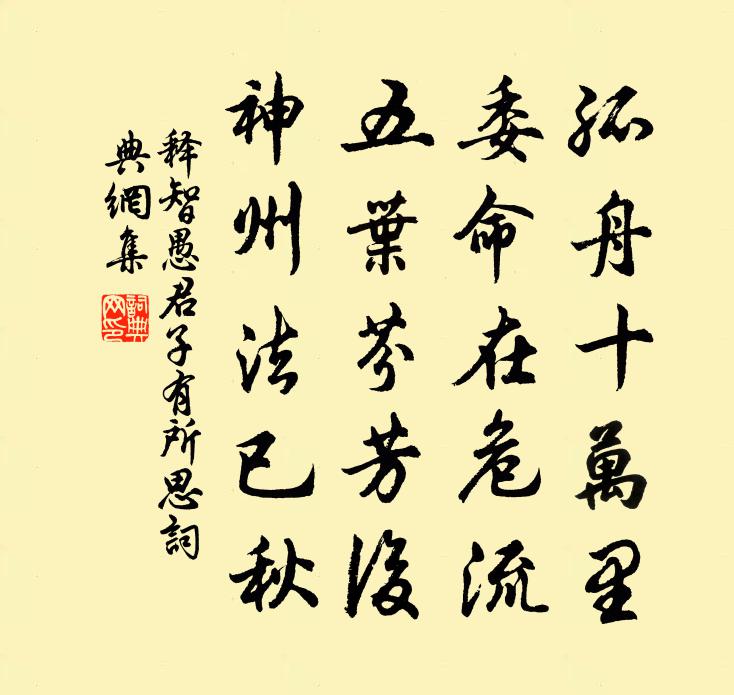 孤舟十萬里
委命在危流
五葉芬芳後
神州法已秋
释智愚君子有所思詞
典網集
詞典
网印